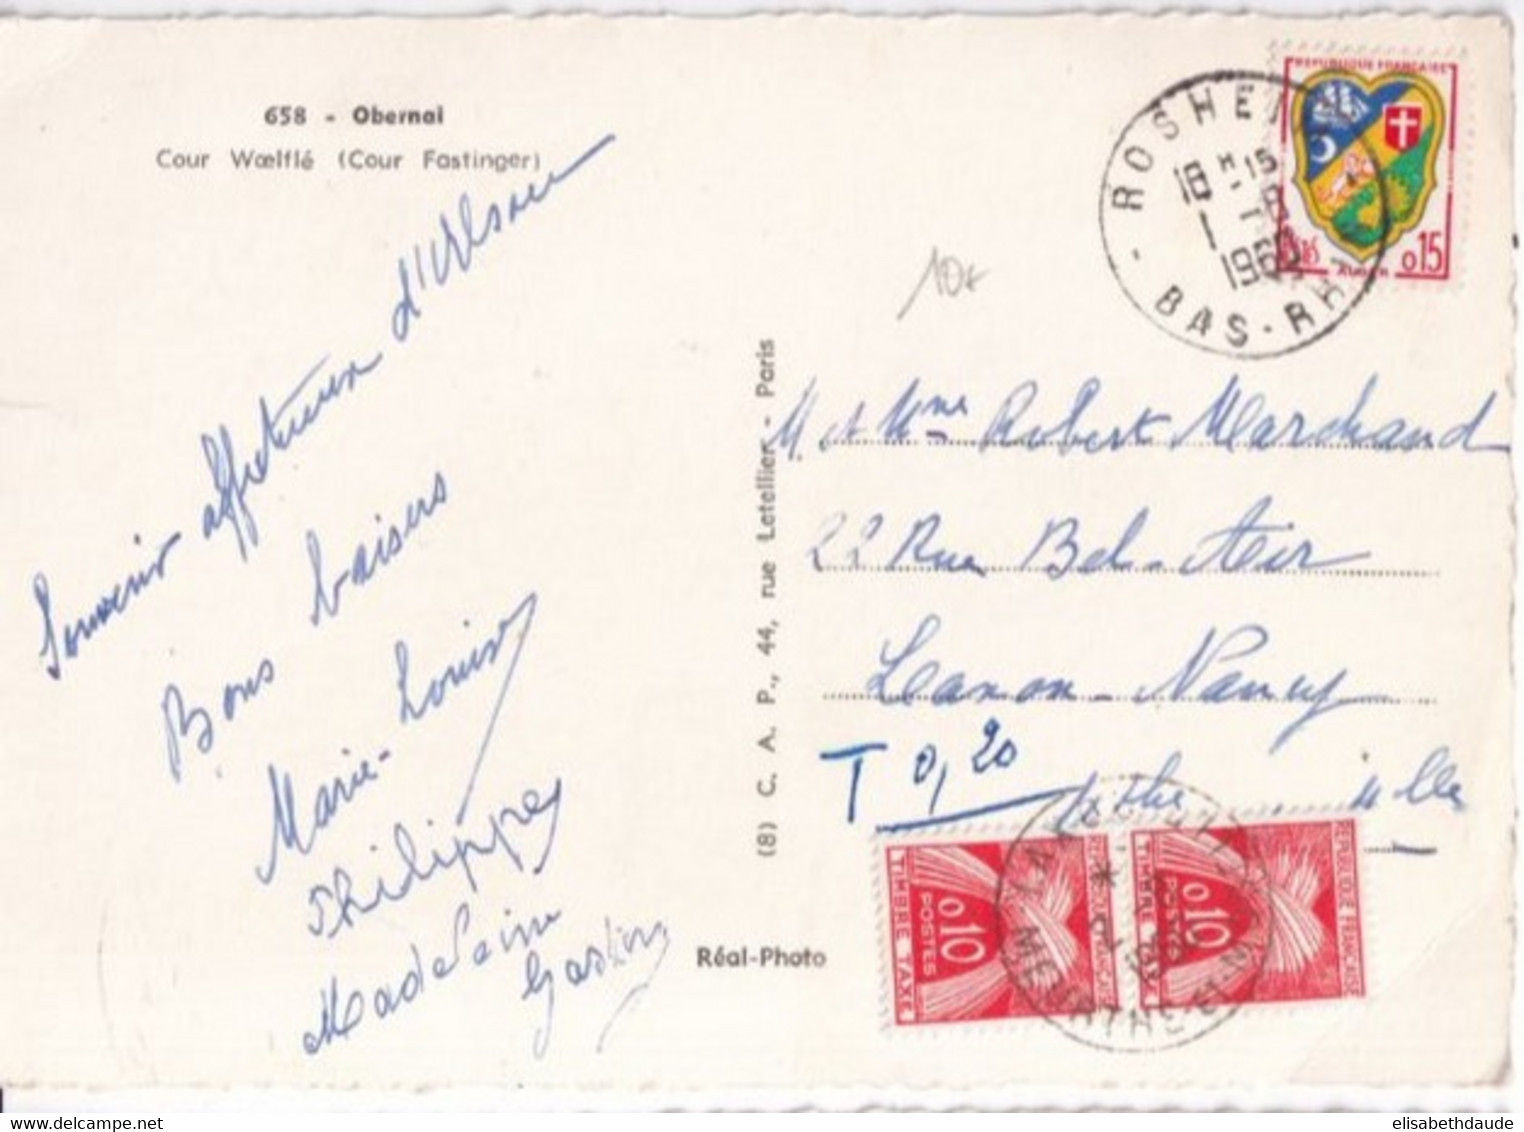 658 - Obernai
Cour Wœlflé (Cour Fastinger)
Souvenir affectueux d'Alsace
Bons baisers
Marie-Louise
Philippe
Madeleine
Gaston
10€
(8) C. A. P., 44, rue Letellier - Paris
Réal-Photo
ROSHEIM
18 H 15
1 - 8
1960
- BAS-RHIN -
REPUBLIQUE FRANÇAISE
ALGER
0,15
M. et Mme Robert Marchand
22 Rue Bel-Air
Laxou-Nancy
T 0,20
Mthe
REPUBLIQUE FRANÇAISE
0,10
POSTES
TIMBRE TAXE
REPUBLIQUE FRANÇAISE
0,10
POSTES
TIMBRE TAXE
MEURTHE-ET-M
elisabethdaude
www.delcampe.net